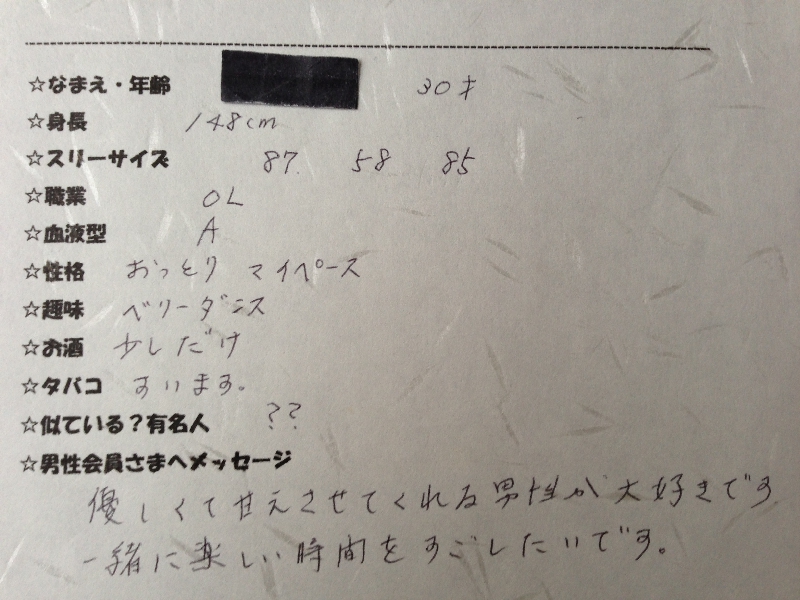 ☆なまえ・年齢 30才
☆身長 148cm
☆スリーサイズ 87. 58 85
☆職業 OL
☆血液型 A
☆性格 おっとり マイペース
☆趣味 ベリーダンス
☆お酒 少しだけ
☆タバコ すいます。
☆似ている?有名人 ??
☆男性会員さまへメッセージ
優しくて甘えさせてくれる男性が大好きです
一緒に楽しい時間をすごしたいです。